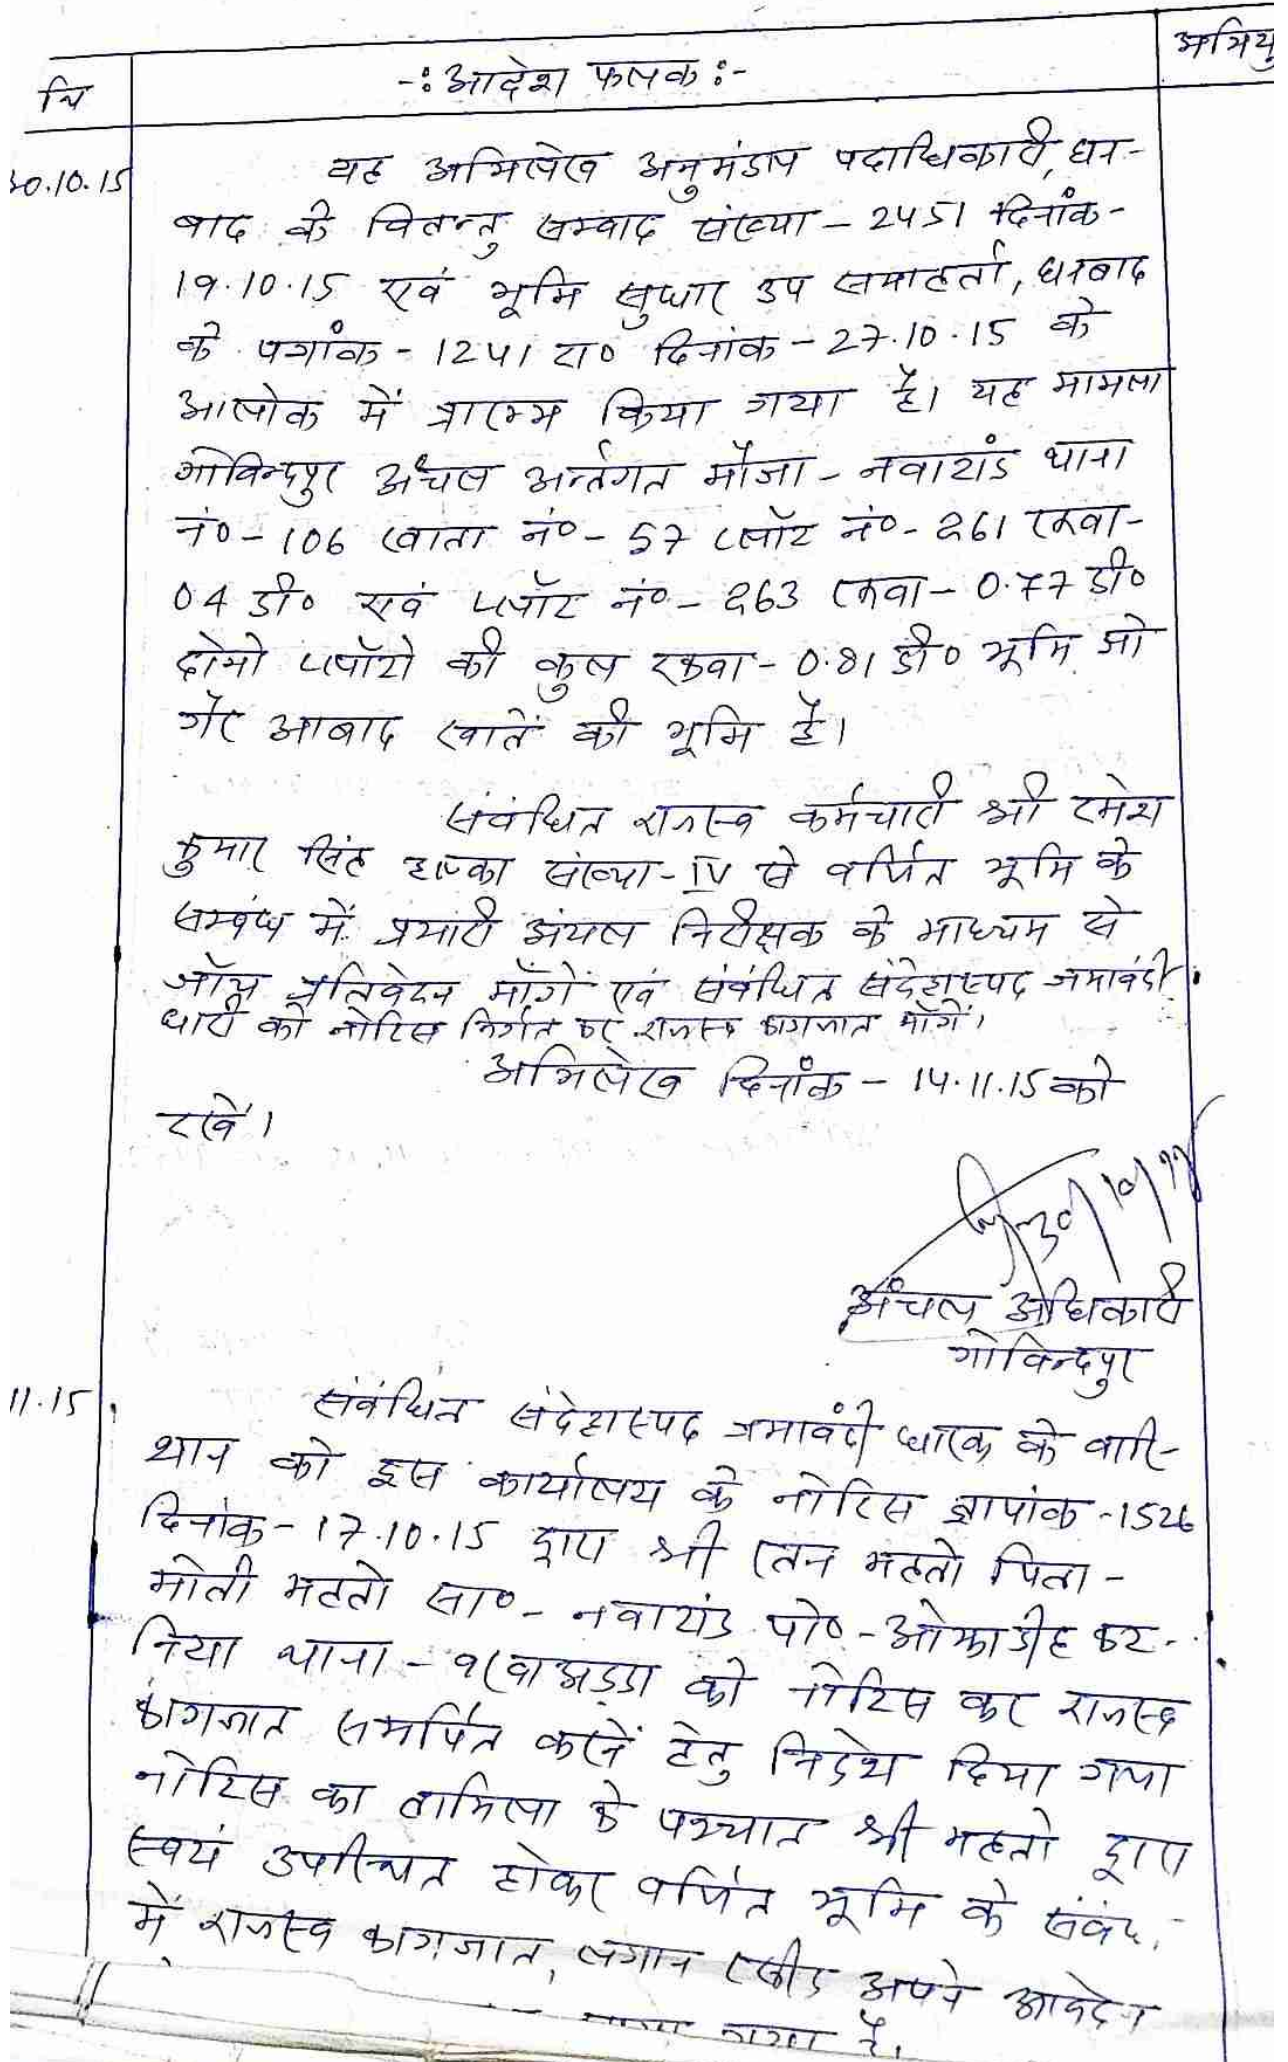 थि
-: आदेश फलक :-
अभियु
30.10.15
यह अभिलेख अनुमंडल पदाधिकारी, धन-
बाद के वितन्तु सम्वाद संख्या - 2451 दिनांक-
19.10.15 एवं भूमि सुधार उप समाहर्ता, धनबाद
के पत्रांक - 1241 रा० दिनांक - 27.10.15 के
आलोक में प्रारम्भ किया गया है। यह मामला
गोविन्दपुर अंचल अर्न्तगत मौजा - नवाटांड थाना
नं० - 106 खाता नं० - 57 प्लॉट नं० - 261 रकवा -
04 डी० एवं प्लॉट नं० - 263 रकवा - 0.77 डी०
दोनो प्लॉटो की कुल रकवा - 0.81 डी० भूमि जो
गैर आबाद खातें की भूमि है।
संबंधित राजस्व कर्मचारी श्री रमेश
कुमार सिंह हल्का संख्या - IV से वर्णित भूमि के
सम्बंध में प्रभारी अंचल निरीक्षक के माध्यम से
जाँच प्रतिवेदन माँगें एवं संबंधित संदेहास्पद जमाबंदी
धारी को नोटिस निर्गत कर राजस्व कागजात माँगें।
अभिलेख दिनांक - 14.11.15 को
रखें।
30/10/15
अंचल अधिकारी
गोविन्दपुर
11.15
संबंधित संदेहास्पद जमाबंदी धारक के वारि-
शान को इस कार्यालय के नोटिस ज्ञापांक - 1526
दिनांक - 17.10.15 द्वारा श्री रतन महतो पिता -
मोती महतो सा० - नवाटांड पो० - ओझाडीह कर-
निया थाना - बरवाअड्डा को नोटिस कर राजस्व
कागजात समर्पित करनें हेतु निर्देश दिया गया
नोटिस का तामिला के पश्चात श्री महतो द्वारा
स्वयं उपस्थित होकर वर्णित भूमि के संबंध
में राजस्व कागजात, लगान रसीद अपने आवेदन
गया है।